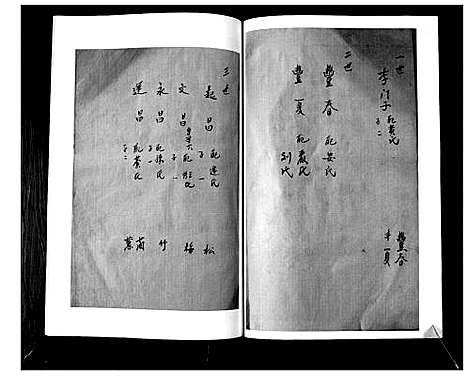 一世
李门子 配黄氏 子二
豐春
丰夏
二世
豐春 配安氏
豐夏 配嚴氏
刘氏
三世
起昌 配連氏 子一 松
文昌 子一 梅
永昌 配陳氏 子一 竹
運昌 配黄氏 子二 蘭